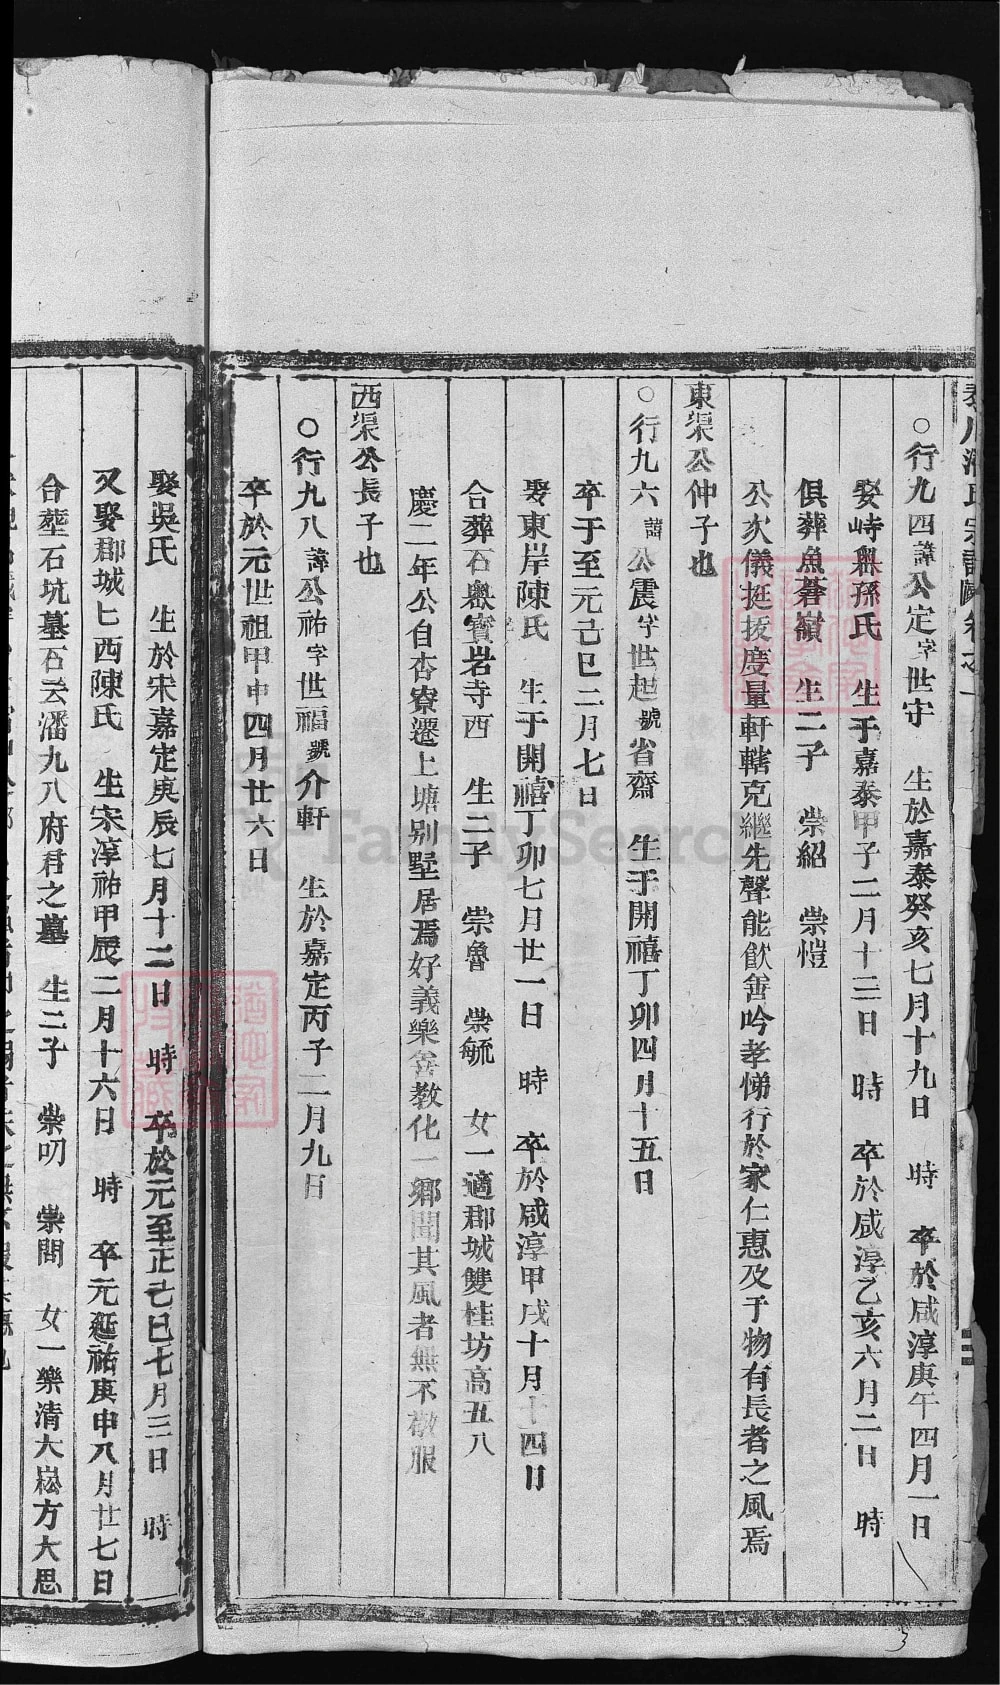 ○行九四諱公定字世守　生於嘉泰癸亥七月十九日　時　卒於咸淳庚午四月一日
娶峙奧孫氏　生于嘉泰甲子二月十三日　時　卒於咸淳乙亥六月二日　時
俱葬魚菪嶺　生二子　崇紹　崇愷
公次儀挺拔度量軒轄克繼先聲能飲善吟孝悌行於家仁惠及于物有長者之風焉
東渠公仲子也
○行九六諱公震字世起號省齋　生于開禧丁卯四月十五日
卒于至元己巳二月七日
娶東岸陳氏　生于開禧丁卯七月廿一日　時　卒於咸淳甲戌十月十四日
合葬石奧寶岩寺西　生二子　崇魯　崇毓　女一適郡城雙桂坊高丑八
慶二年公自杏寮遷上塘别墅居焉好義樂善教化一鄉聞其風者無不敬服
西渠公長子也
○行九八諱公祐字世福號介軒　生於嘉定丙子二月九日
卒於元世祖甲申四月廿六日
娶吳氏　生於宋嘉定庚辰七月十二日　時　卒於元至正己巳七月三日　時
又娶郡城匕西陳氏　生宋淳祐甲辰二月十六日　時　卒元延祐庚申八月廿七日
合塟石坑墓石云潘九八府君之墓　生二子　崇叨　崇閭　女一樂清大崧方大思
FamilySearch
3